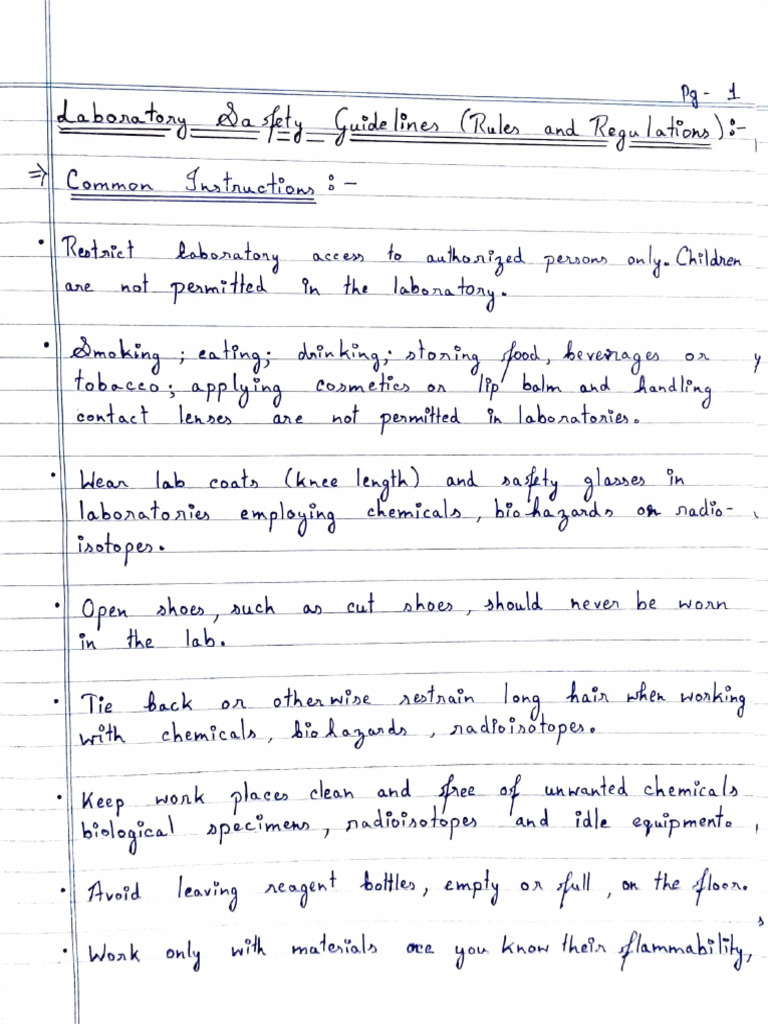 Pg - 1
Laboratory Safety Guidelines (Rules and Regulations) :-
⇒ Common Instructions :-
• Restrict laboratory access to authorized persons only. Children
are not permitted in the laboratory.
• Smoking ; eating; drinking; storing food, beverages or
tobacco; applying cosmetics or lip balm and handling
contact lenses are not permitted in laboratories.
• Wear lab coats (knee length) and safety glasses in
laboratories employing chemicals, biohazards or radio-
isotopes.
• Open shoes, such as cut shoes, should never be worn
in the lab.
• Tie back or otherwise restrain long hair when working
with chemicals, biohazards, radioisotopes.
• Keep work places clean and free of unwanted chemicals
biological specimens, radioisotopes and idle equipment.
• Avoid leaving reagent bottles, empty or full, on the floor.
• Work only with materials once you know their flammability,